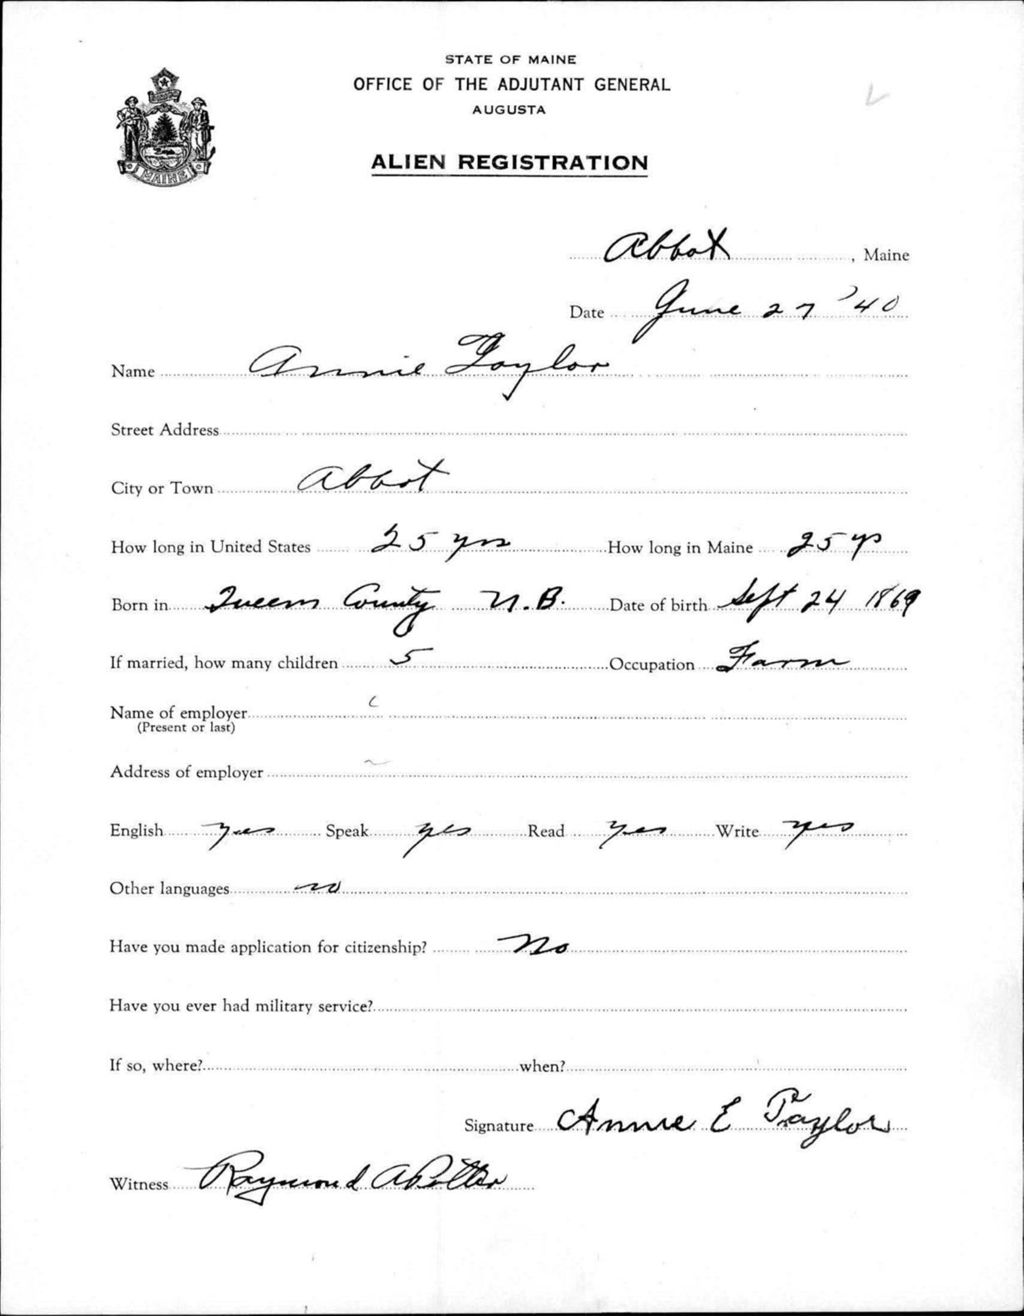 STATE OF MAINE
OFFICE OF THE ADJUTANT GENERAL
AUGUSTA
ALIEN REGISTRATION
Abbot, Maine
Date June 27 '40
Name Annie Taylor
Street Address
City or Town Abbot
How long in United States 25 yrs How long in Maine 25 yr
Born in Queens County N.B. Date of birth Sept 24 1869
If married, how many children 5 Occupation Farm
Name of employer
(Present or last)
Address of employer
English yes Speak yes Read yes Write yes
Other languages no
Have you made application for citizenship? No
Have you ever had military service?
If so, where? when?
Signature Annie E Taylor
Witness Raymond A Potter
MAINE